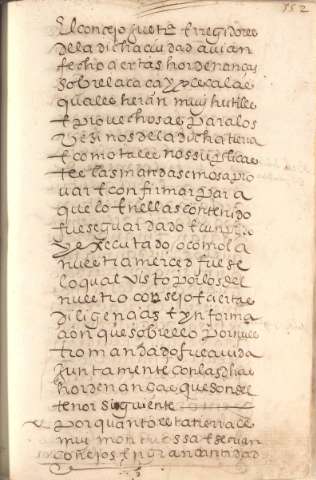 152
El concejo justª e regidores
de la dicha ciudad avian
fecho çiertas hordenanças
sobre la caça y pesca las
quales heran muy hutilles
e probechosas para los
vezinos de la dicha tierra
e como tales nos suplicas
tes las mandasemos apro
var e confirmar para
que lo en ellas contenido
fuese guardado e cunplido
y executado o como la
nuestra merced fuese
lo qual visto por los del
nuestro consejo e çiertas
diligençias e ynforma
çion que sobre ello por nues
tro mandado fue avida
juntamente con las dichas
hordenanças que son del
tenor siguiente
por quanto esta tierra es
muy montuossa e se crian
conejos e gran cantidad